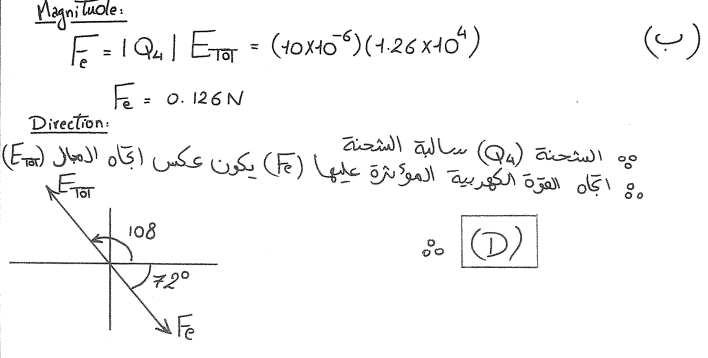 Magnitude:
Fe = |Q4| ETOT = (10×10^-6)(1.26×10^4) (ب)
Fe = 0.126N
Direction:
∵ الشحنة (Q4) سالبة الشحنة
∴ اتجاه القوة الكهربية المؤثرة عليها (Fe) يكون عكس اتجاه المجال (ETOT)
ETOT
108
72°
Fe
∴ (D)